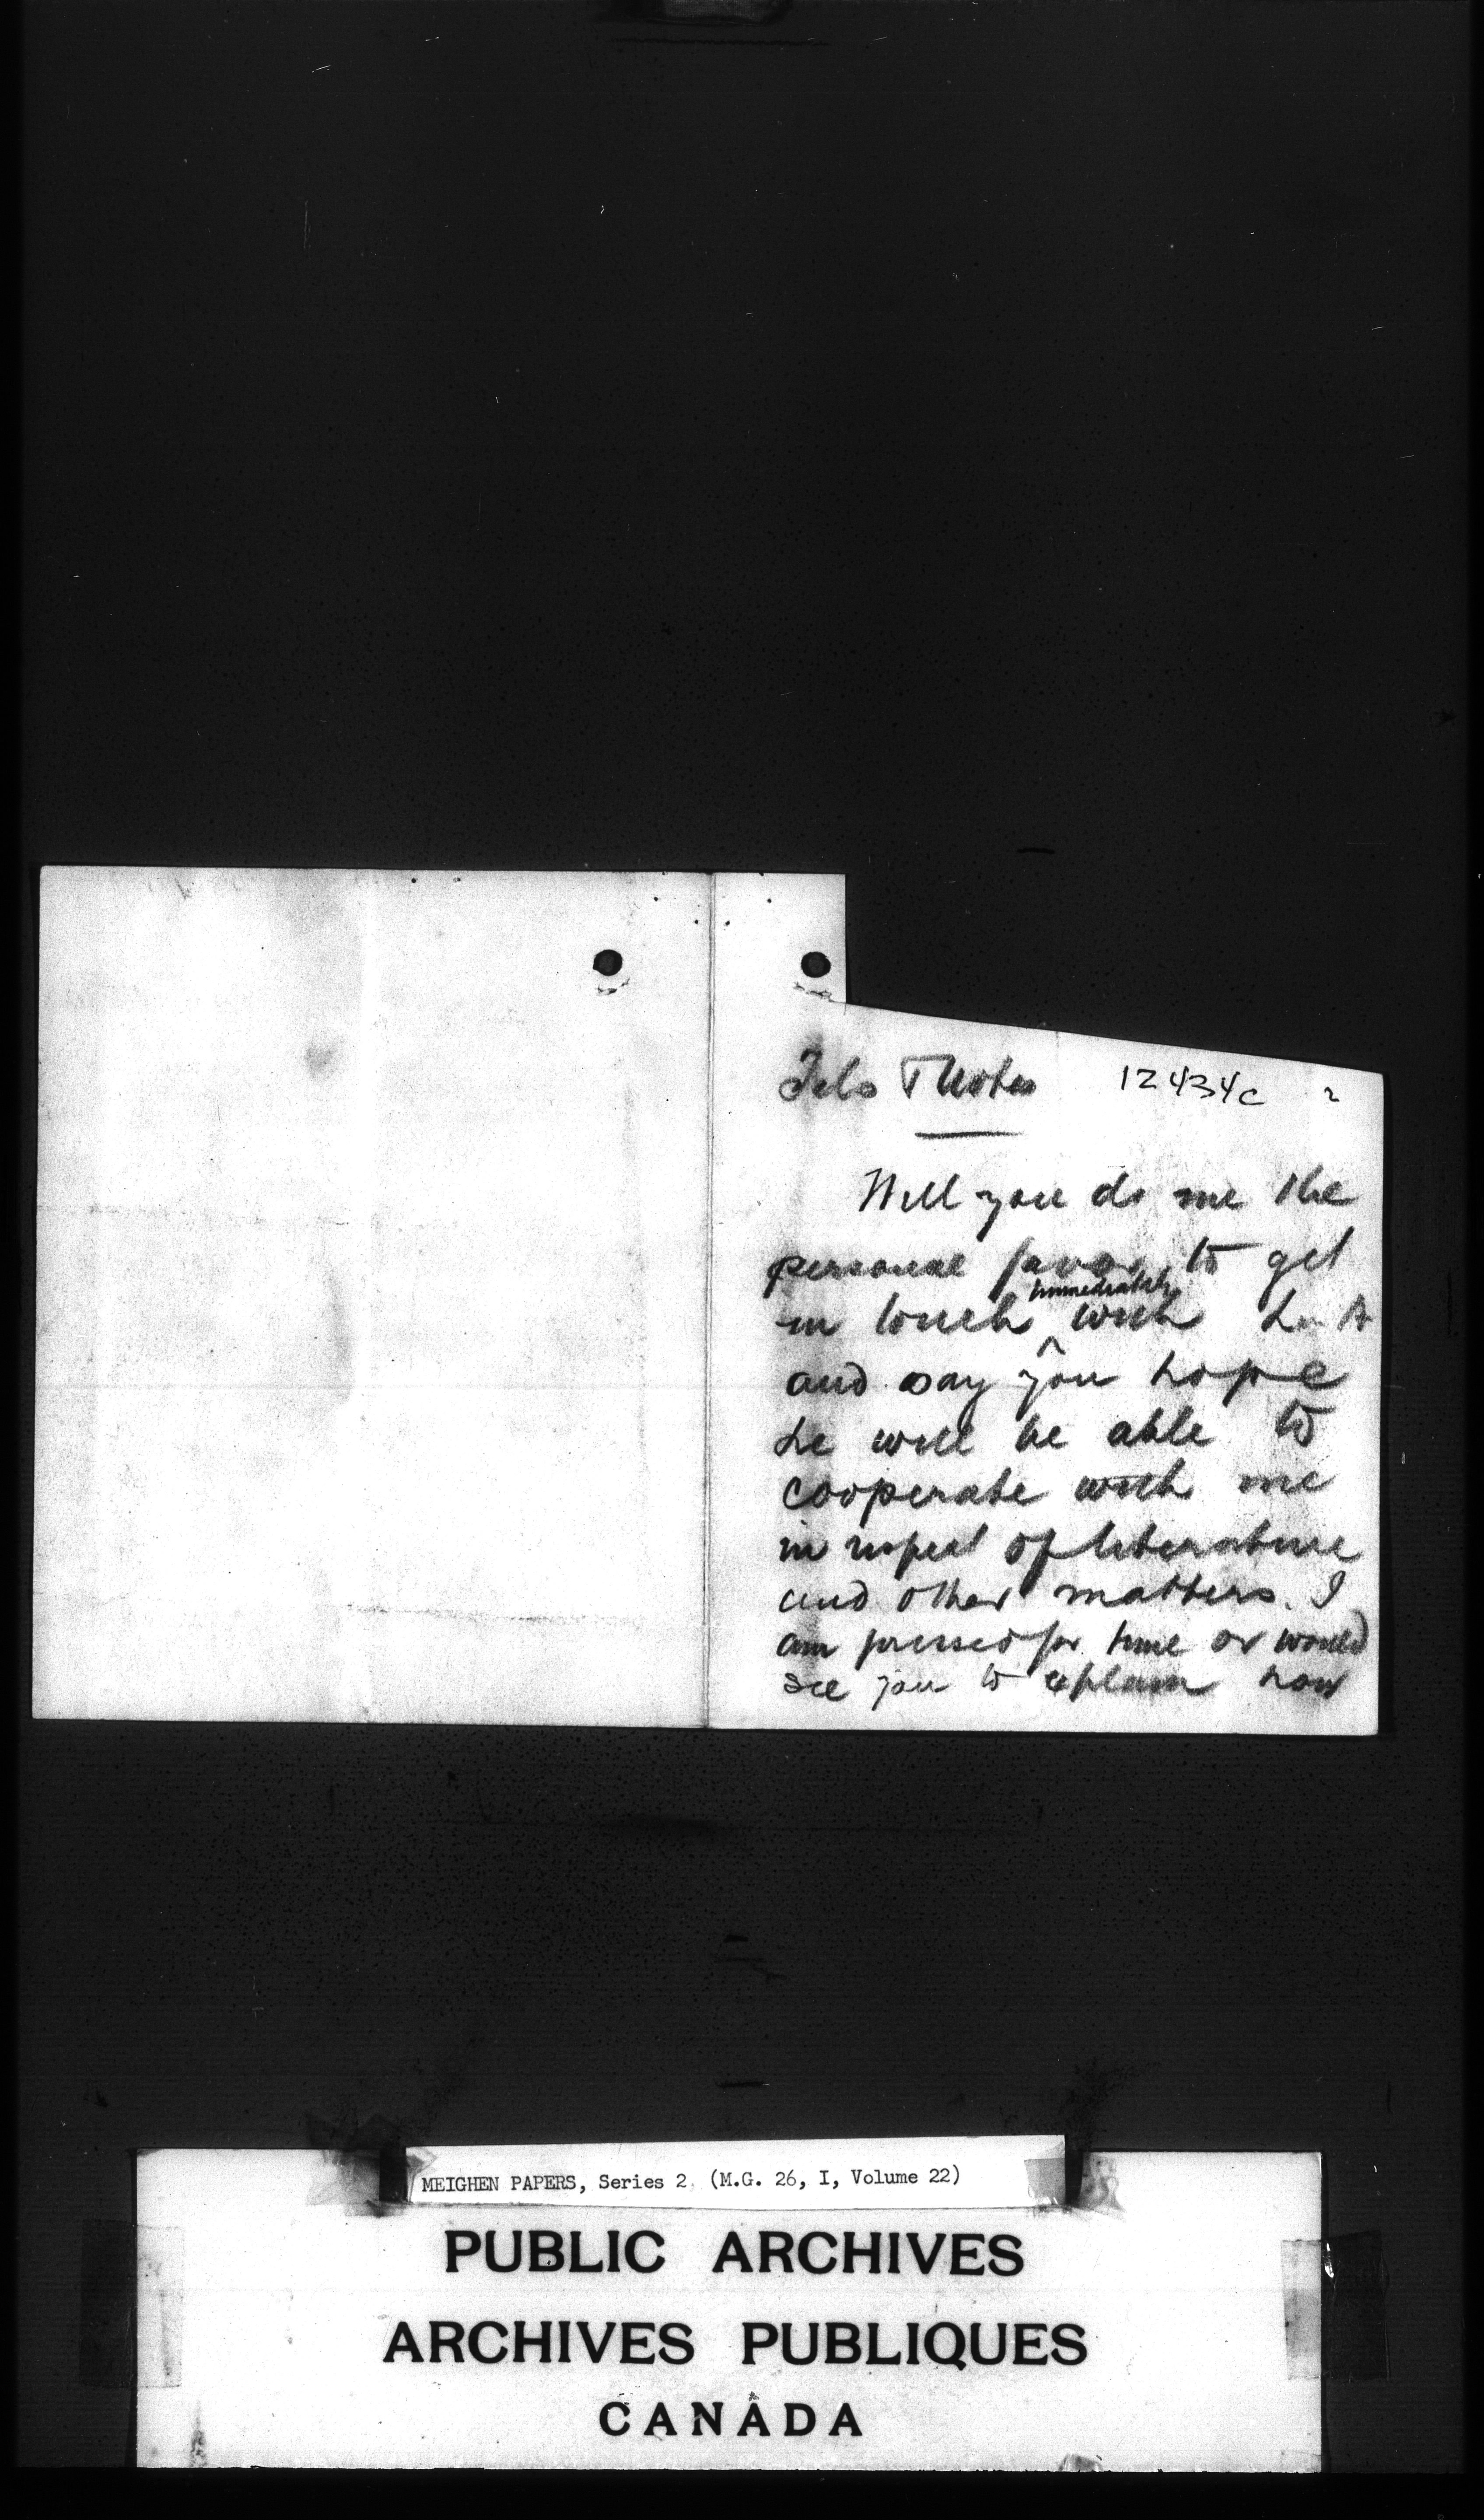 12434c 2
Will you do me the
personal favor to get
in touch immediately with
and say you hope
he will be able to
cooperate with me
in respect of literature
and other matters. I
am pressed for time or would
see you to explain how
MEIGHEN PAPERS, Series 2 (M.G. 26, I, Volume 22)
PUBLIC ARCHIVES
ARCHIVES PUBLIQUES
CANADA